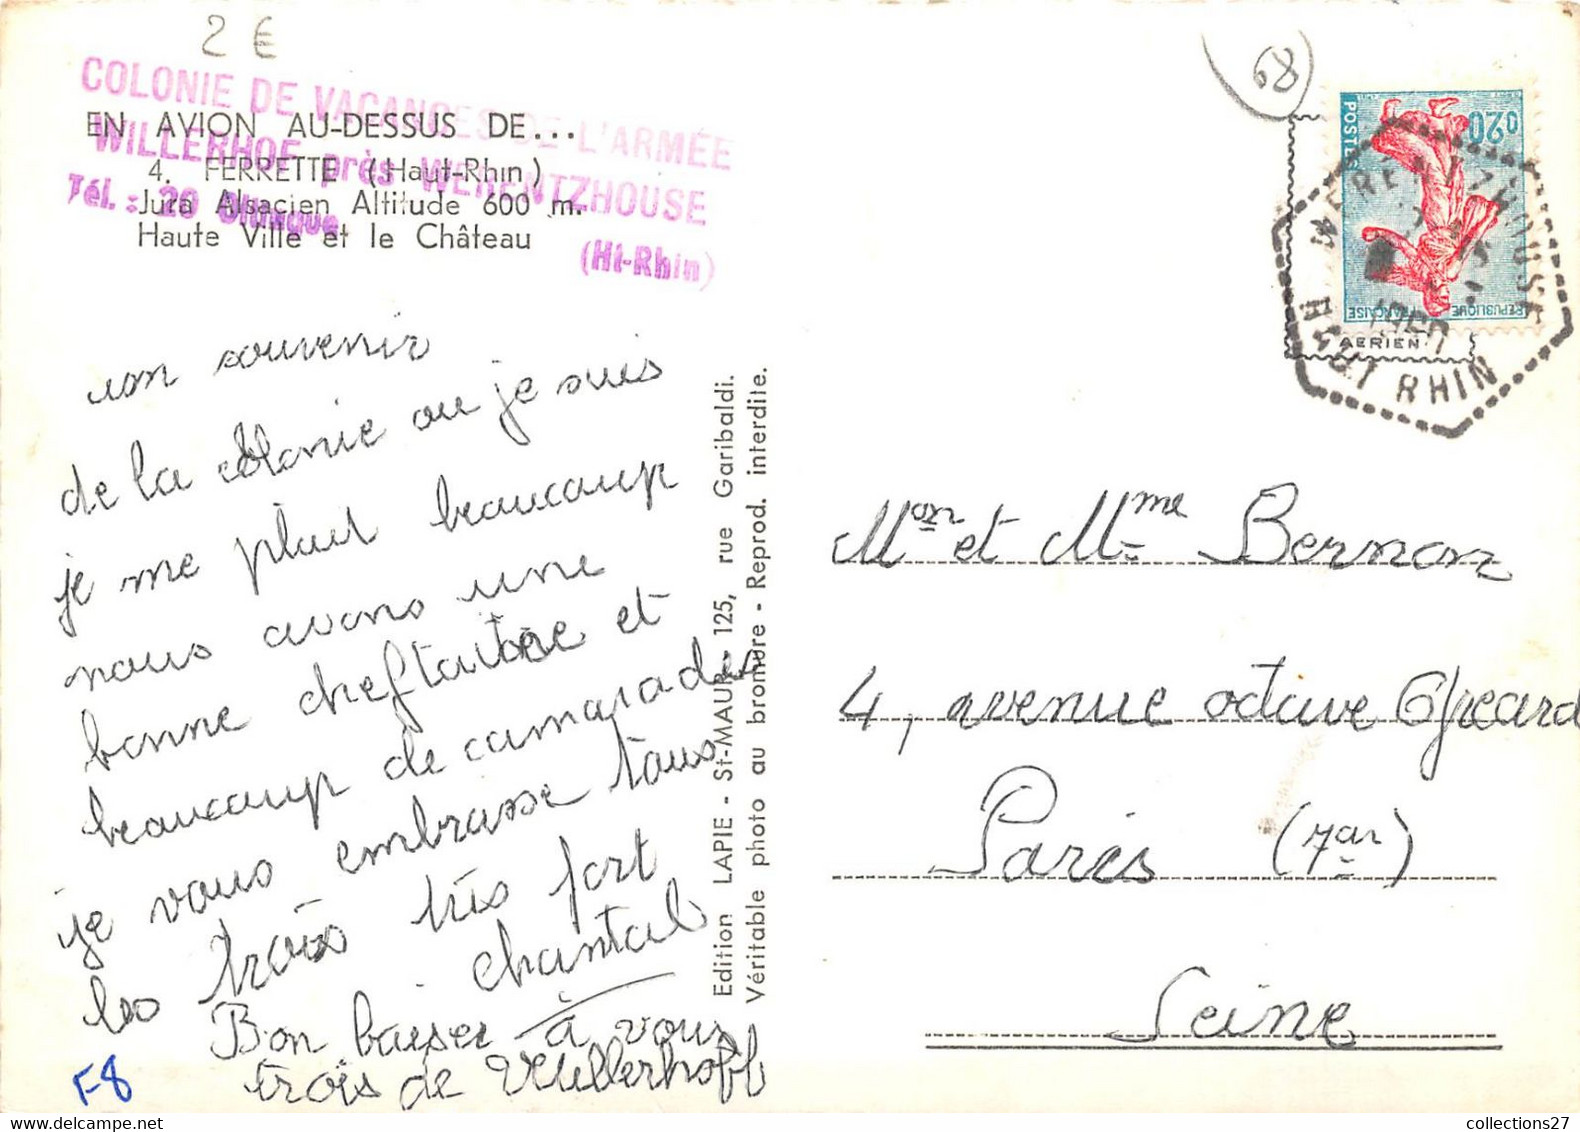 2 €
COLONIE DE VACANCES DE L'ARMÉE
WILLERHOF près WERENTZHOUSE
Tél. : 20 Oltingue
(Ht-Rhin)
EN AVION AU-DESSUS DE...
4. FERRETTE (Haut-Rhin)
Jura Alsacien Altitude 600 m.
Haute Ville et le Château
un souvenir
de la colonie ou je suis
je me plait beaucoup
nous avons une
bonne cheftaine et
beaucoup de camarades
je vous embrasse tous
les trois très fort
chantal
Bon baiser à vous
trois de Willerhoff
F8
Edition LAPIE - St-MAUR - 125, rue Garibaldi.
Véritable photo au bromure - Reprod. interdite.
POSTES
0,20
REPUBLIQUE FRANÇAISE
AERIEN
WERENTZHOUSE
HAUT RHIN
Mon et Mme Bernon
4, avenue octave Gréard
Paris (7ar)
Seine
collections27